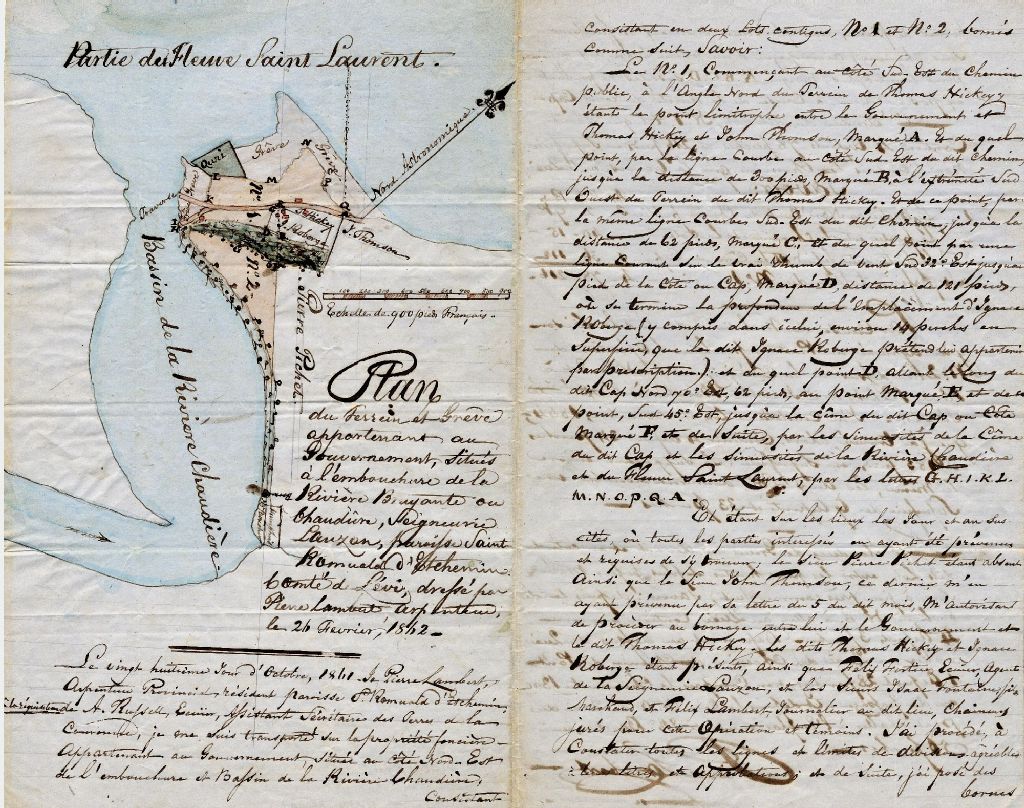 Partie du Fleuve Saint Laurent.
Quai
Grève
Grève
Nord Astronomique
Traverse
No 1
T. Hickey
I. Roberge
J. Thomson
No 2
Pierre Pichet
Bassin de la Rivière Chaudière
100 200 300 400 500 600 700 800 900
Echelle de 900 pieds Français.
Plan
du Terrein et Grève
appartenant au
Gouvernement, situés
à l'embouchure de la
Rivière Bruyante ou
Chaudière, Seigneurie
Lauzon, paroisse Saint
Romuald d'Etchemin
Comté d Lévi, dressé par
Pierre Lambert Arpenteur,
le 26 Février, 1842
Le vingt huitième Jour d'Octobre, 1841 Je Pierre Lambert,
Arpenteur Provincial, résident paroisse St Romuald d'Etchemin,
à la réquisition de A. Russell, Ecuier, Assistant Sécrétaire des Terres de la
Couronne, je me suis transporté sur la propriété foncière
Appartenant au Gouvernement, située au côté Nord-Est
de l'embouchure et Bassin de la Rivière Chaudière,
Consistant
Consistant en deux Lots contigus, No 1 et No 2, bornés
Comme suit, Savoir:
Le No 1, Commençant au côté Sud-Est du Chemin
public, à l'Angle Nord du Terrein de Thomas Hickey
étant le point limitrophe entre le Gouvernement et
Thomas Hickey et John Thomson, Marqué A. Et du quel
point, par la ligne Courbe au côté Sud Est du dit Chemin,
jusqu'à la distance de pieds, Marqué B, à l'extrémité Sud
Ouest du Terrein du dit Thomas Hickey. Et de ce point, par
la même ligne Courbe Sud-Est du dit Chemin, jusqu'à la
distance de 62 pieds, Marqué C; et du quel point par une
ligne Courant sur le vrai rhumb de vent Sud 32° Est jusqu'au
pied de la Côte ou Cap, Marqué D, distance de 121 pieds,
où se termine la profondeur de l'emplacement d'Ignace
Roberge (y compris dans icelui, environ 14 perches en
Superficie, que le dit Ignace Roberge prétend lui appartenir
par prescription); et du quel point D, allant le long du
dit Cap Nord 70° Est, 62 pieds, au point Marqué E et de ce
point, Sud 45° Est, jusqu'à la Cîme du dit Cap ou Côte
Marqué F, et de Suite, par les Sinuosités de la Cîme
du dit Cap et les Sinuosités de la Rivière Chaudière
et du Fleuve Saint Laurent, par les lettres G.H.I.K.L.
M.N.O.P.Q.A.
Et étant sur les lieux les Jour et an sus
cités, où toutes les parties intéressées ou ayant été prévenues
et requises de s'y trouver, le Sieur Pierre Pichet étant absent
Ainsi que le Sieur John Thomson, ce dernier m'en
ayant prévenu par sa lettre du 5 du dit mois, M'Autorisant
de procéder au bornage entre lui et le Gouvernement et
le dit Thomas Hickey. Les dits Thomas Hickey et Ignace
Roberge étant présents, Ainsi que Félix Fortier, Ecuier, Agent
de la Seigneurie Lauzon, et les Sieurs Isaac
Marchand, et Félix Lambert Journalier au dit lieu, Chaineurs
jurés pour cette Opération et témoins. J'ai procédé, à
Constater toutes les lignes et limites de division, agréables
titres et Approbations; et de Suite, j'ai posé des
bornes